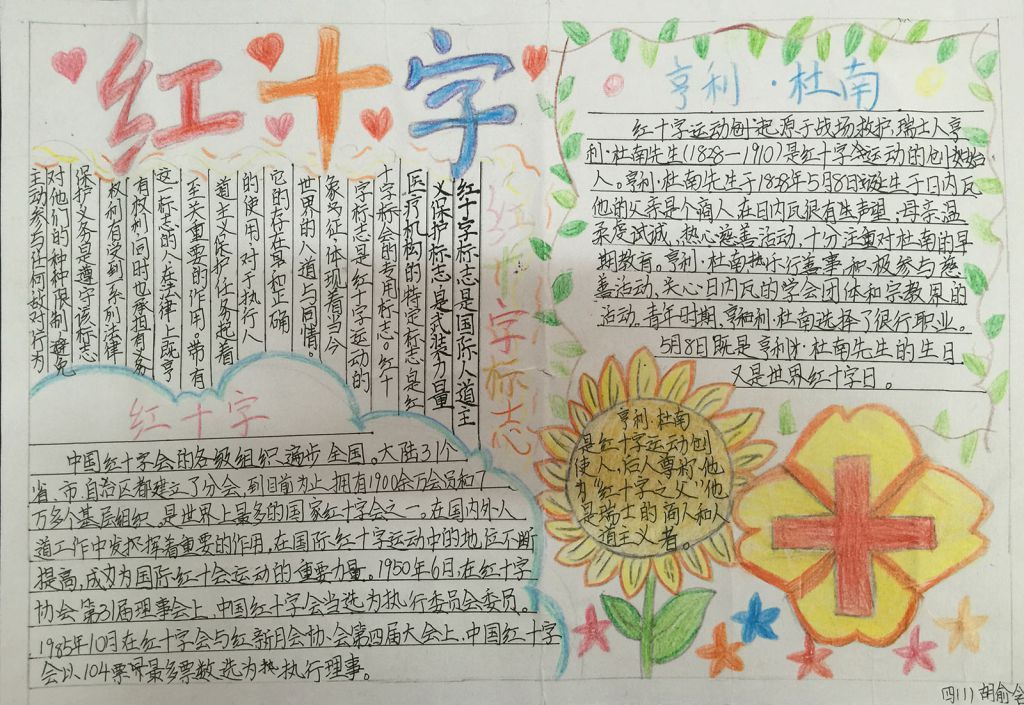 红十字
红十字标志
红十字标志是国际人道主
义保护标志，是武装力量
医疗机构的特定标志，是红
十字标会的专用标志。红十
字标志是红十字运动的
象征，体现着当今
世界的人道与同情。
它的存在具和正确
的使用，对于执行人
道主义保护任务起着
至关重要的作用。带有
这一标志的人在法律上既享
有权利同时也承担有义务
权利有受到系列法律
保护义务是遵守该标志
对他们的种种限制，避免
主动参与任何敌对行为
红十字
中国红十字会的各级组织遍步全国。大陆31个
省、市、自治区都建立了分会，到目前为止，拥有1900余万会员和7
万多个基层组织，是世界上最多的国家红十字会之一。在国内外人
道工作中发挥着重要的作用，在国际红十字运动中的地位不断
提高，成为国际红十会运动的重要力量。1950年6月，在红十字
协会第31届理事会上，中国红十字会当选为执行委员会委员。
1985年10月在红十字会与红新月会协会第四届大会上，中国红十字
会以104票最多票数选为执行理事。
亨利·杜南
红十字运动起源于战场救护，瑞士人亨
利·杜南先生(1828—1910)是红十字会运动的创始
人。亨利·杜南先生于1828年5月8日出生于日内瓦
他的父亲是个商人，在日内瓦很有生声望，母亲温
柔虔诚，热心慈善活动，十分注重对杜南的早
期教育，亨利·杜南热乐行善事积极参与慈
善活动，关心日内瓦的学会团体和宗教界的
活动。青年时期，亨利·杜南选择了银行职业。
5月8日既是亨利·杜南先生的生日
又是世界红十字日。
亨利·杜南
是红十字运动创
使人，后人尊称他
为“红十字之父”他
是瑞士的商人和人
道主义者。
四(1) 胡俞含